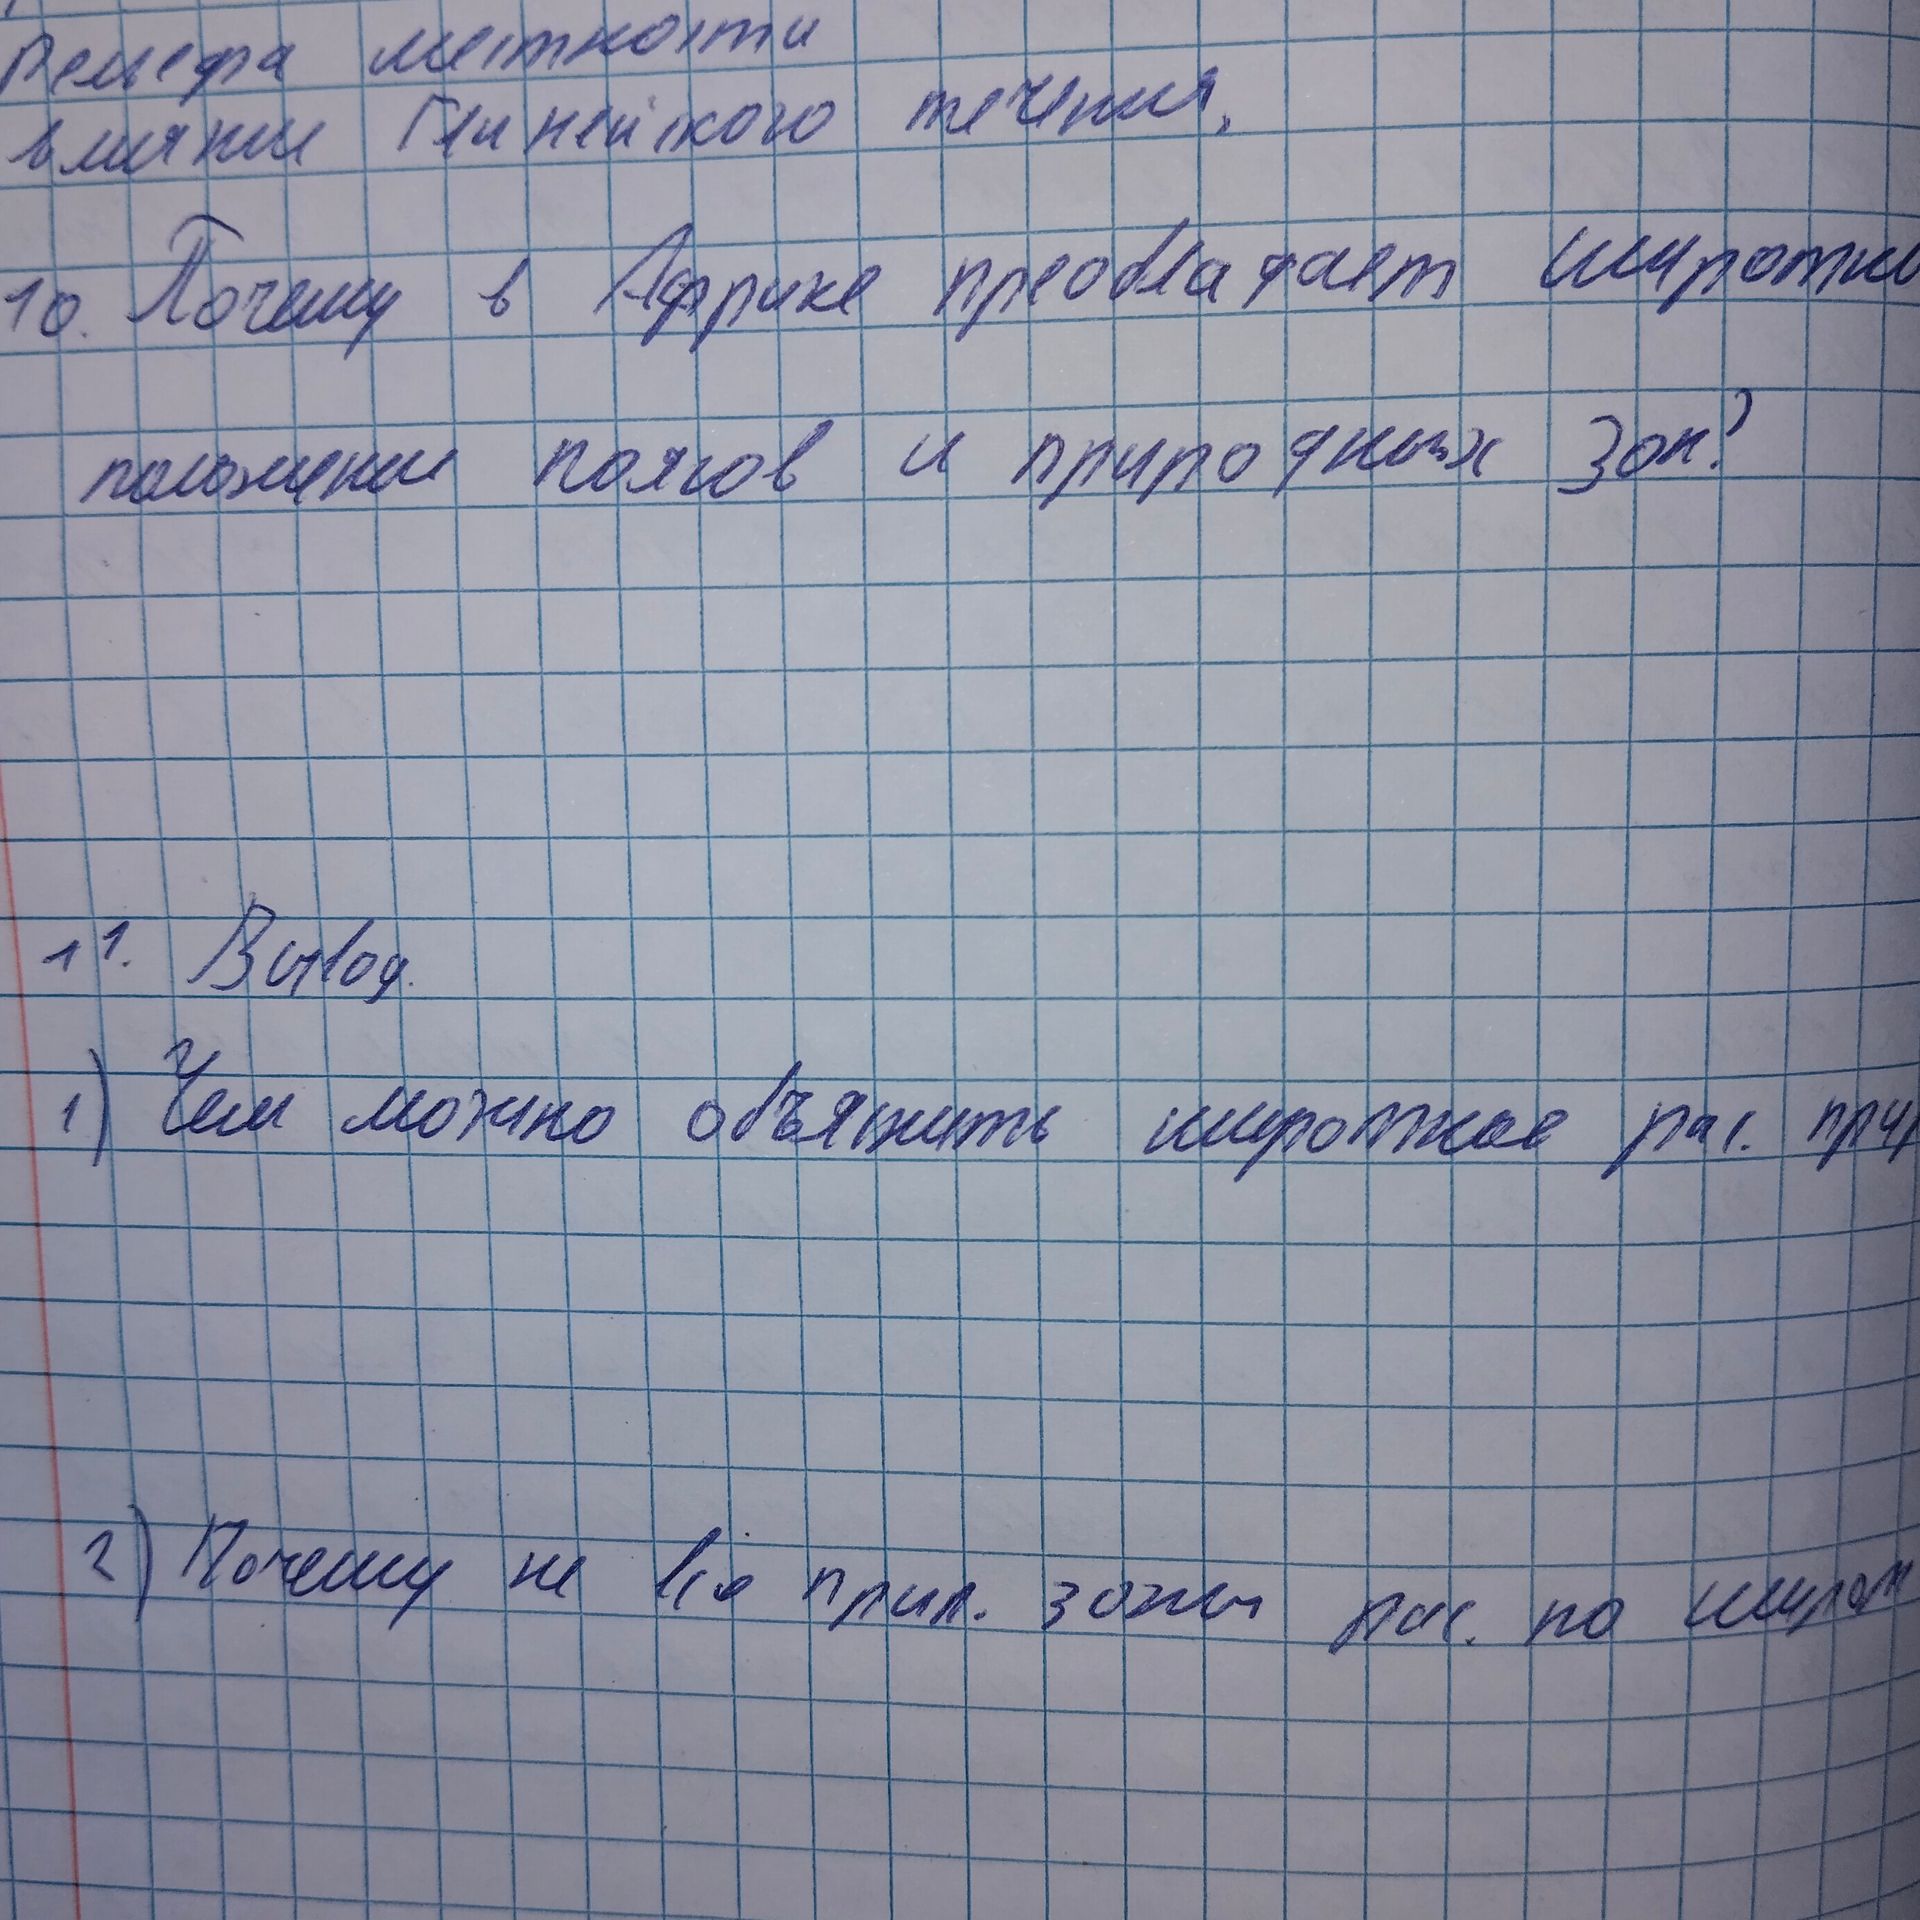 Рельефа местности
влияние Гвинейского течения,
10. Почему в Африке преобладает широтно
положение поясов и природных зон?
11. Вывод.
1) Чем можно объяснить широтное рас. прир
2) Почему не все прир. зоны рас. по широт